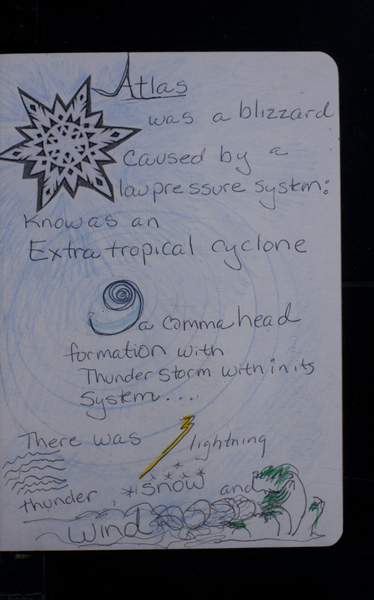 Atlas
was a blizzard
caused by a
low pressure system:
Know as an
Extra tropical cyclone
a comma head
formation with
Thunder storm with in its
System....
There was lightning
thunder snow and
wind